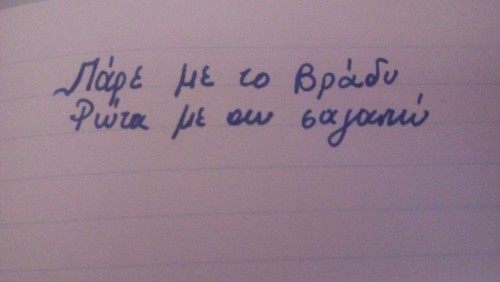 Πάρε με το βράδυ
Ρώτα με αν σαγαπώ